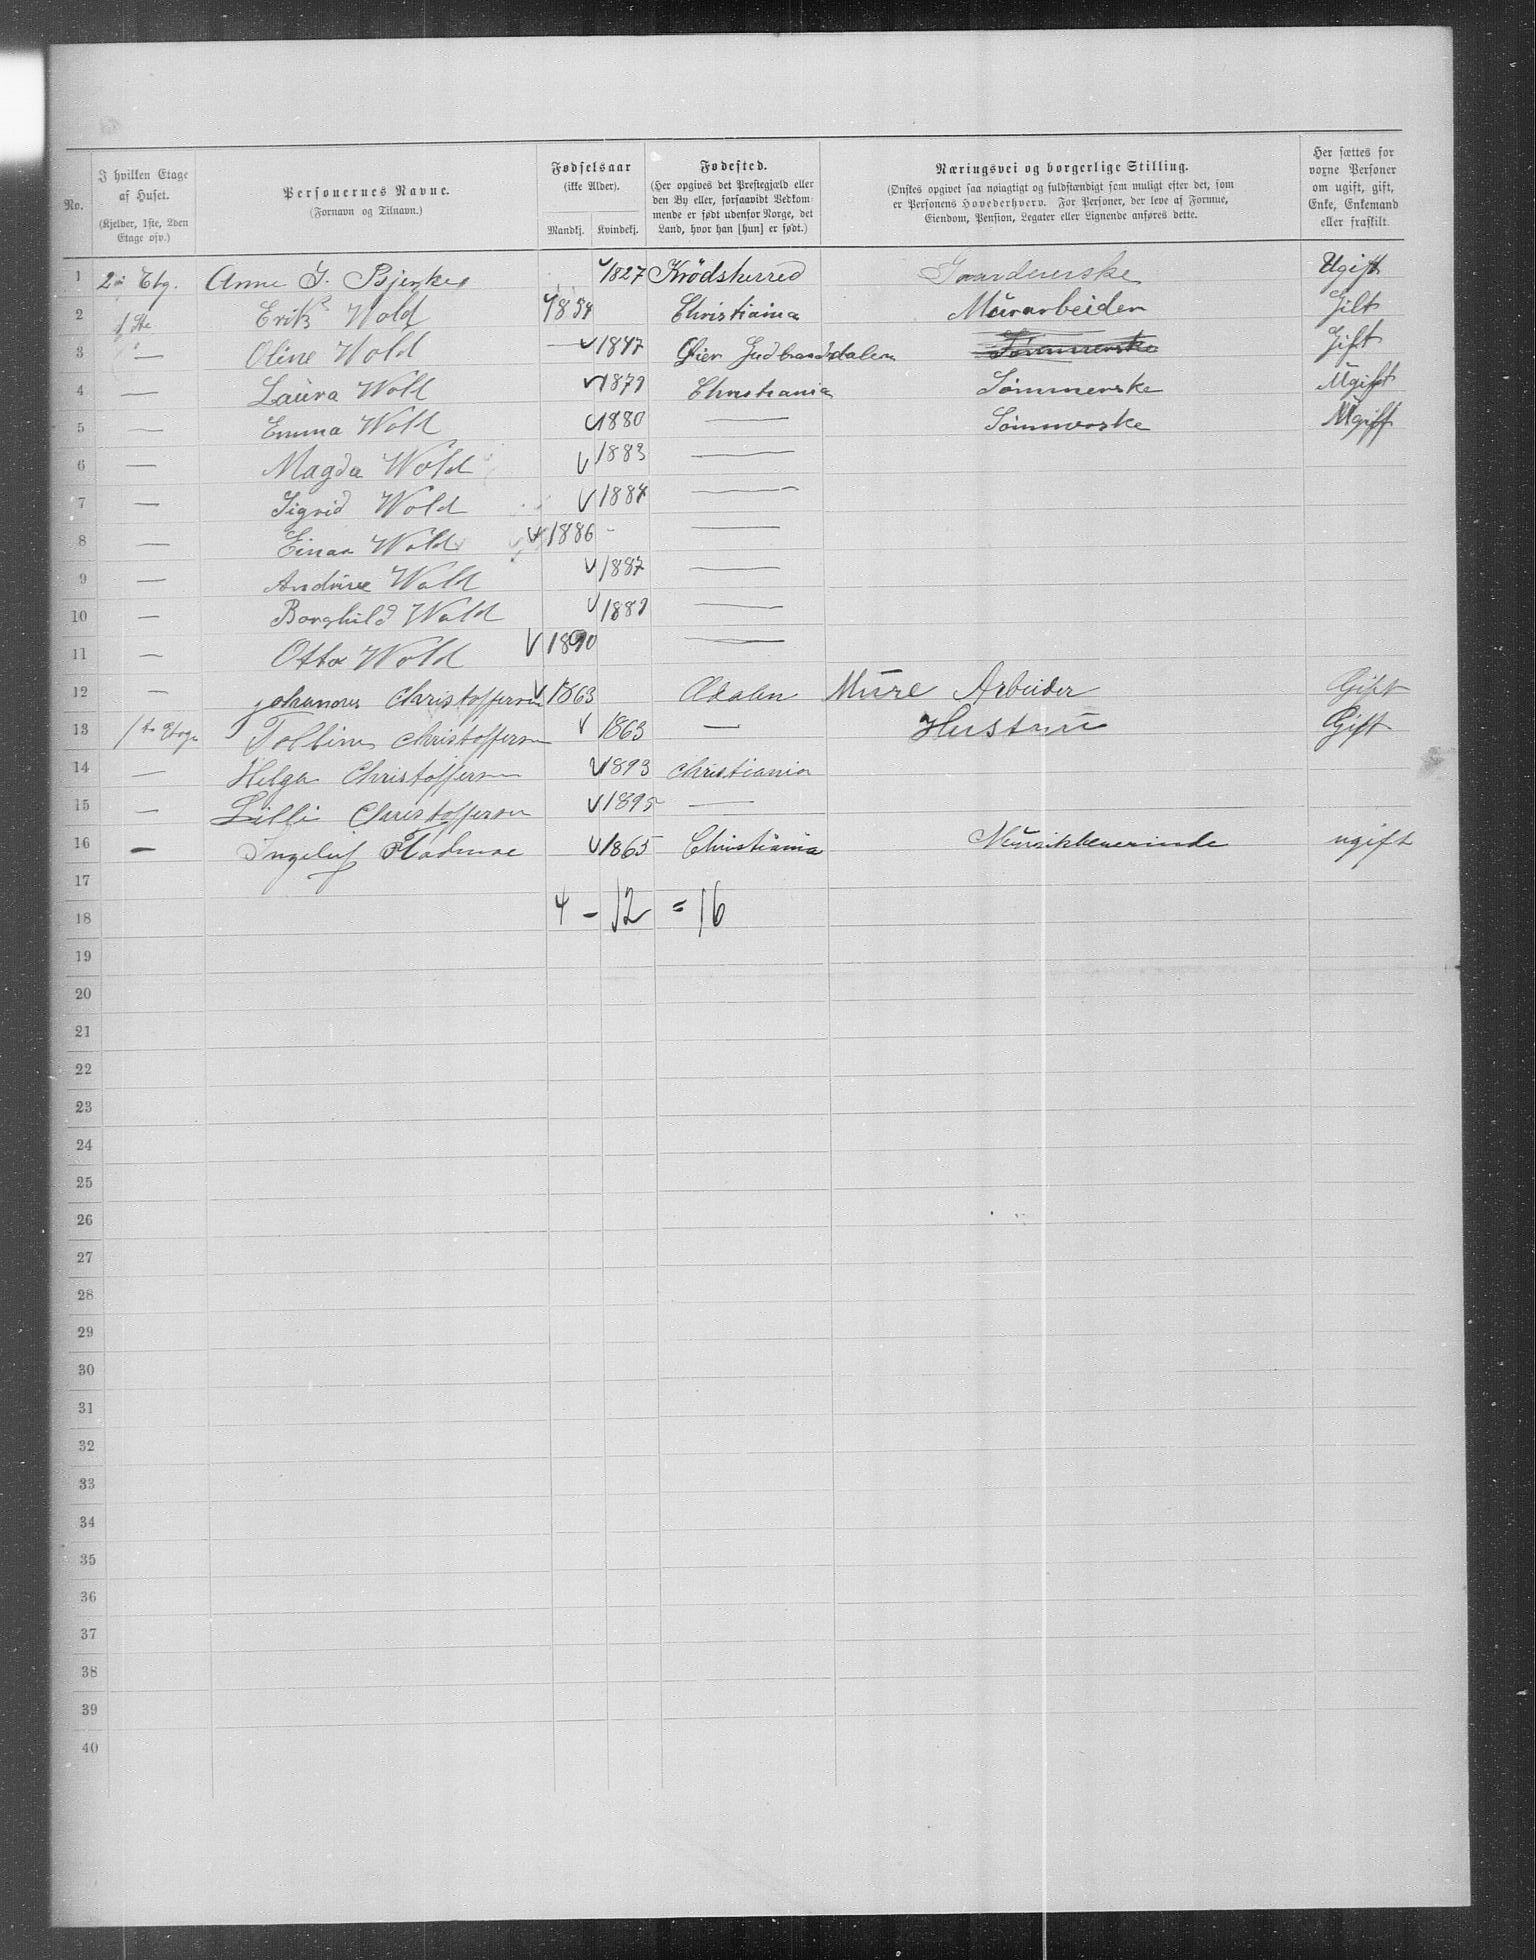 No.
I hvilken Etage af Huset.
(Kjelder, 1ste, 2den Etage osv.)
Personernes Navne.
(Fornavn og Tilnavn.)
Fødselsaar
(ikke Alder).
Mandkj. Kvindekj.
Fødested.
(Her opgives det Prestegjæld eller
den By eller, forsaavidt Vedkom-
mende er født udenfor Norge, det
Land, hvor han [hun] er født.)
Næringsvei og borgerlige Stilling.
(Ønskes opgivet saa nøiagtigt og fuldstændigt som muligt efter det, som
er Personens Hovederhverv. For Personer, der leve af Formue,
Eiendom, Pension, Legater eller Lignende anføres dette.
Her sættes for
voxne Personer
om ugift, gift,
Enke, Enkemand
eller fraskilt.
1 2 Etg. Anne J. 1827 Krödsherred Ugift
2 1ste Erik Wold 1854 Christiania Murarbeider Gift
3 — Oline Wold — 1847 Øier Gudbrandsdalen Sömmerske Gift
4 — Laura Wold 1879 Christiania Sömmerske Ugift
5 — Emma Wold 1880 — Sömmerske Ugift
6 — Magda Wold 1883 —
7 — Sigrid Wold 1884 —
8 — Einar Wold 1886 —
9 — Andrine Wold 1887 —
10 — Borghild Wold 1889 —
11 — Otto Wold 1890 —
12 — Johannes Christoffersen 1863 Mure Arbeider Gift
13 1ste Christoffersen 1863 — Hustru Gift
14 — Helga Christoffersen 1893 Christiania
15 — Lilli Christoffersen 1895 —
16 — 1865 Christiania Musiklærerinde ugift
17
18 4 - 12 = 16
19
20
21
22
23
24
25
26
27
28
29
30
31
32
33
34
35
36
37
38
39
40